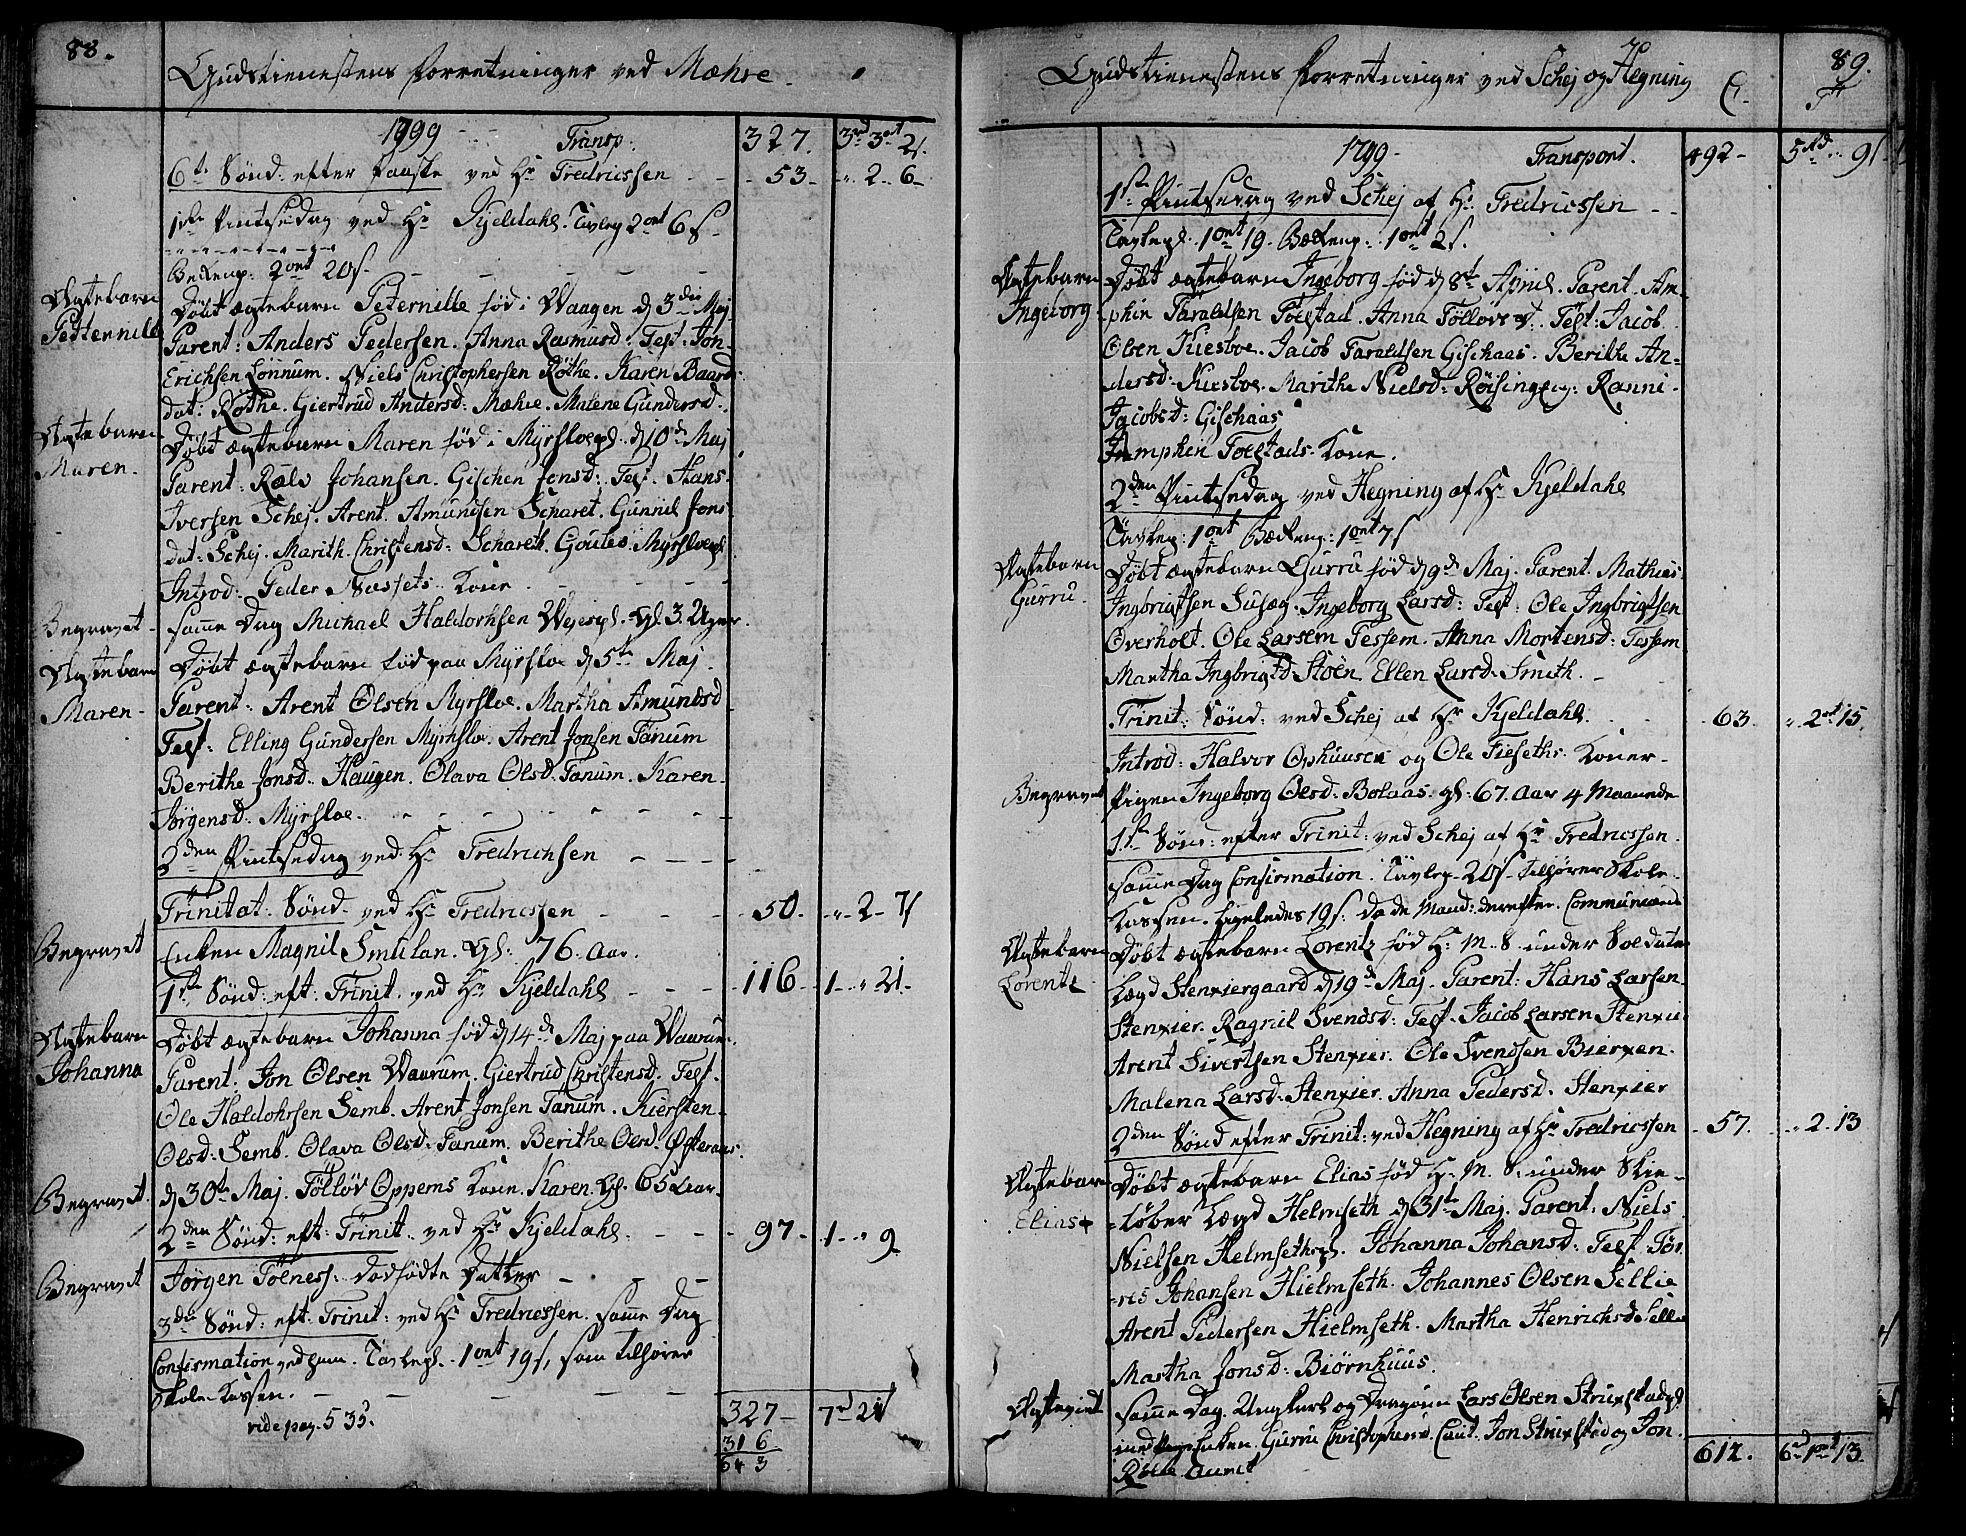 88.
Gudstienestens forretninger ved Mæhre.
1799 Transp. 327. 3rd 3ort 21.
6te Sønd: efter Paaske ved Hr Fredricssen 53 2 6
1ste Pintsedag ved Hr Kjeldahl. Tavlep 2ort 6s
Bekenp: 2ort 20s
Ægtebarn Petternille
Døbt ægtebarn Peternille fød i Waagen d 3die Maj
Parent: Anders Pedersen. Anna Rasmusd: Test. Jon
Erichsen Lønnum. Niels Christophersen Røthe. Karen Baards
dat: Røthe. Giertrud Andersd. Mæhre. Malene Gundersd.
Ægtebarn Maren.
Døbt ægtebarn Maren fød i Myrsloepl. d 10de Maj
Parent: Rælv Johansen. Gitchen Jonsd: Test. Hans
Iversen Schej. Arent Amundsen Scharet. Gunnil Jons
dat: Schej. Marith Christensd: Schareth. Goutes Myrsloepl
Introd: Peder Næssets Kone
Begravet
samme Dag Michael Haldorhsen Wejespl. Gl. 3. Uger.
Ægtebarn Maren
Døbt ægtebarn fød paa Myrsloe d 5te Maj.
Parent: Arent Olsen Myrsloe. Martha Amundsd
Test: Elling Gundersen Myrhsloe. Arent Jonsen Tanum
Berithe Jonsd. Haugen. Olava Olsd. Tanum. Karen
Jørgensd: Myrsloe.
2den Pintsedag ved Hr Fredrichsen
Trinitat: Sønd. ved Hr Fredricssen 50. 2 7s
Begravet
Enken Magnil Smulan. Gl: 76. Aar.
1ste Sønd: eft: Trinit. ved Hr Kjeldahl 116 1 21.
Ægtebarn Johanna
Døbt ægtebarn Johanna fød d 14de Maj paa Waurum.
Parent. Jon Olsen Waurum. Giertrud Christensd. Test.
Ole Haldohrsen Semb. Arent Jonsen Tanum. Kiersten
Olsd: Semb. Olava Olsd: Tanum. Berithe Olsd. Østeraas.
Begravet.
d 30te Maj. Følløv Oppems Kone. Karen. Gl. 65 Aar
2den Sønd: eft: Trinit. ved Hr Kjeldahl. 97 1 9
Begravet
Jørgen Tølness: dødfødte Datter
3die Sønd: eft: Trinit: ved Hr Fredricssen. samme Dag
Confirmation ved ham. Tavlepl. 1ort 19s, som tilhører
Skole-Kassen.
vide pag. 535. 327 7rd 21s
316
643
89.
Gudstienestens forretninger ved Schej og Hegning C.
1799. Transport. 492 5rd 9s
1ste Pintsedag ved Schej af Hr. Fredricssen
Tavlepl. 1ort 19. Bækenp: 1ort 2s.
Ægtebarn Ingeborg
Døbt ægtebarn Ingeborg fød d 8de April. Parent. Am
phin Taraldsen Foestad. Anna Følløvsd. Test: Jacob
Olsen Kuesboe. Jacob Taraldsen Gischaas. Berithe An
dersd: Kuesboe. Marithe Nielsd: Røisingeng: Ranni
Jacobsd: Gischaas
Amphin Foestads Kone.
2den Pintsedag ved Hegning af Hr Kjeldahl
Tavlep: 1ort Bækenp: 1ort 7s
Ægtebarn Gurru
Døbt ægtebarn Gurru fød d 9de Maj. Parent. Mathias
Ingbrigtsen Susæg. Ingeborg Larsd: Test: Ole Ingbrigtsen
Overholt. Ole Larsem Tessem. Anna Mortensd: Tessem
Martha Ingbrigtsd Stoen. Ellen Larsd. Smith.
Trinit: Sønd: ved Schej af Hr Kjeldahl. 63. 2ort 15.
Introd: Halvor Ophuuses og Ole Fieseths Koner
Begravet
Pigen Ingeborg Olsd: Bolaas. gl: 67. Aar 4 Maaneder
1ste Sønd: efter Trinit: ved Schej af Hr Fredricssen.
samme Dag Confirmation. Tavlep 20s tilhører Skole
Kassen. Ligeledes 19s. da de Mand: derefter Communicered
Ægtebarn Lorentz
Døbt ægtebarn Lorentz fød H: M. S. under Soldater
Lægd Stenxiergaard d 19de Maj. Parent: Hans Larsen
Stenxier. Ragnil Svendsd: Test. Jacob Larsen Stenxie
Arent Sivertsen Stenxier. Ole Svendsen Bierxen.
Malena Larsd. Stenxier. Anna Pedersd. Stenxier
2den Sønd efter Trinit: ved Hegning af Hr Fredricssen 57. 2 13
Ægtebarn Elias
Døbt ægtebarn Elias fød H. M. S. under Skie
løber Lægd Helmseth d 31te Maj. Parent. Niels
Nielsen Helmsethpl. Johanna Johansd: Test. Tør
ris Johansen Hielmseth. Johannes Olsen Sellie
Arent Pedersen Hielmseth. Martha Henrichsd Sellie
Martha Jonsd: Biørnhuus.
Ægteviet
samme Dag. Ungkarl og Dragoun Lars Olsen Struxstadpl
med Enken Gurru Christophersd. Caut. Jon Struxstad og Jon
Røske Aunet 612. 6rd 1ort 13.